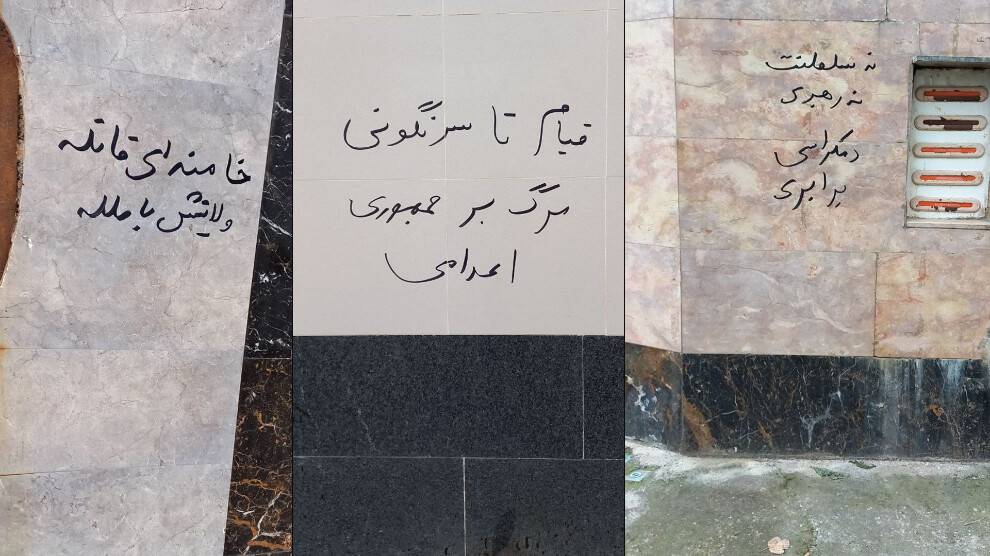 خامنه‌ای قاتله
ولایتش باطله
قیام تا سرنگونی
مرگ بر جمهوری
اعدامی
نه سلطنت
نه رهبری
دمکراسی
برابری